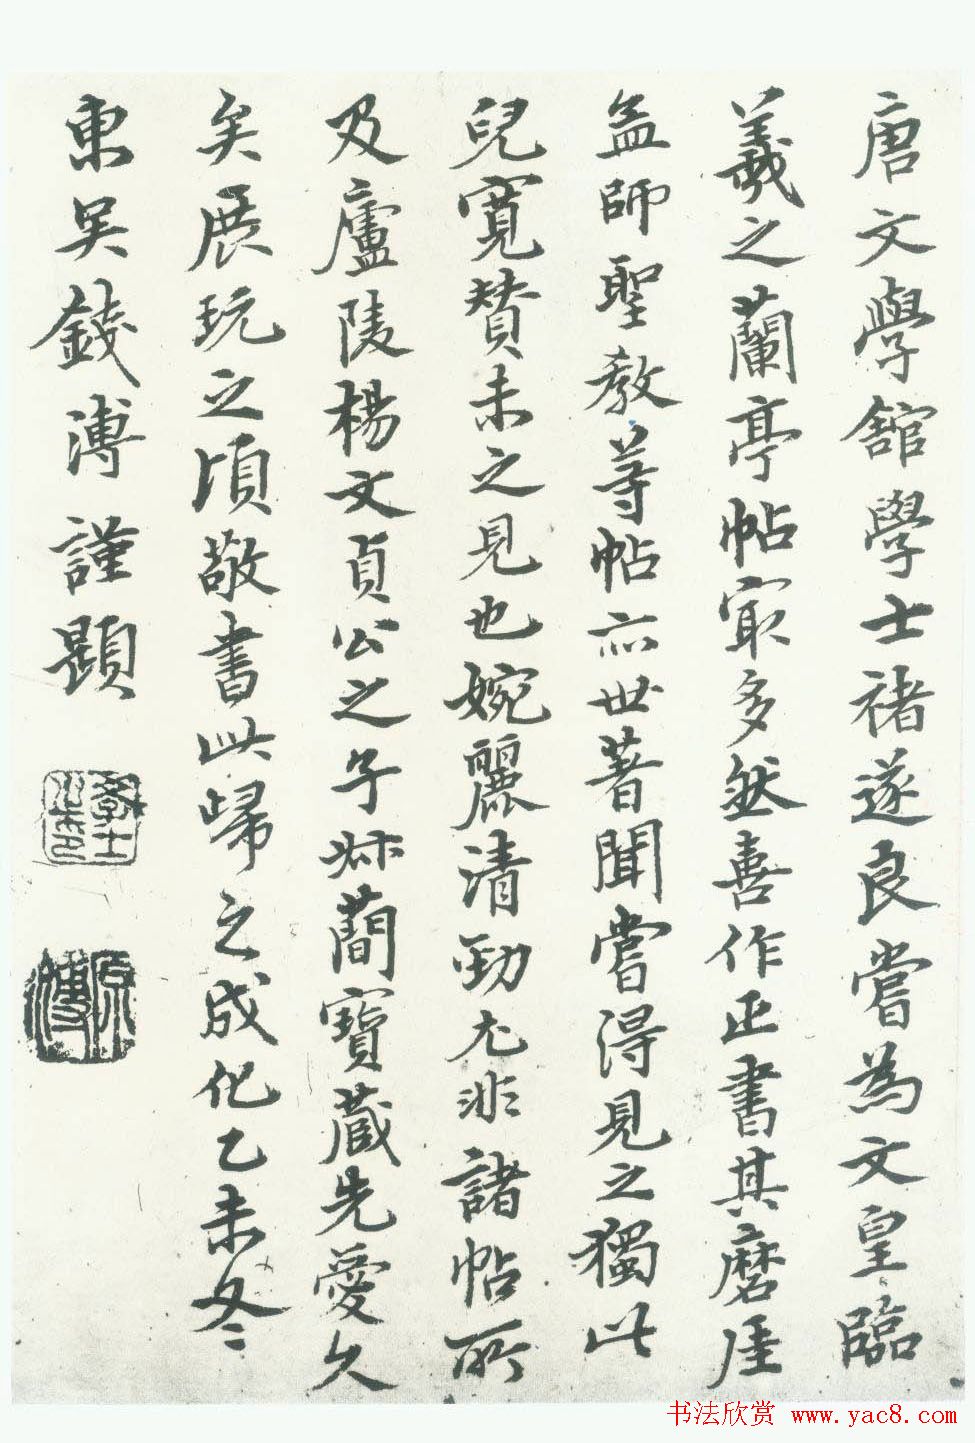 唐文學館學士褚遂良嘗為文皇臨
羲之蘭亭帖㝡多然喜作正書其磨厓
孟師聖教等帖亦世著聞嘗得見之獨此
兒寬贊未之見也婉麗清勁尤非諸帖所
及廬陵楊文貞公之子叔蕳寶蔵先愛久
矣展玩之頃敬書此歸之成化乙未冬
東吴錢溥謹題
學士
之印
原溥
书法欣赏 www.yac8.com